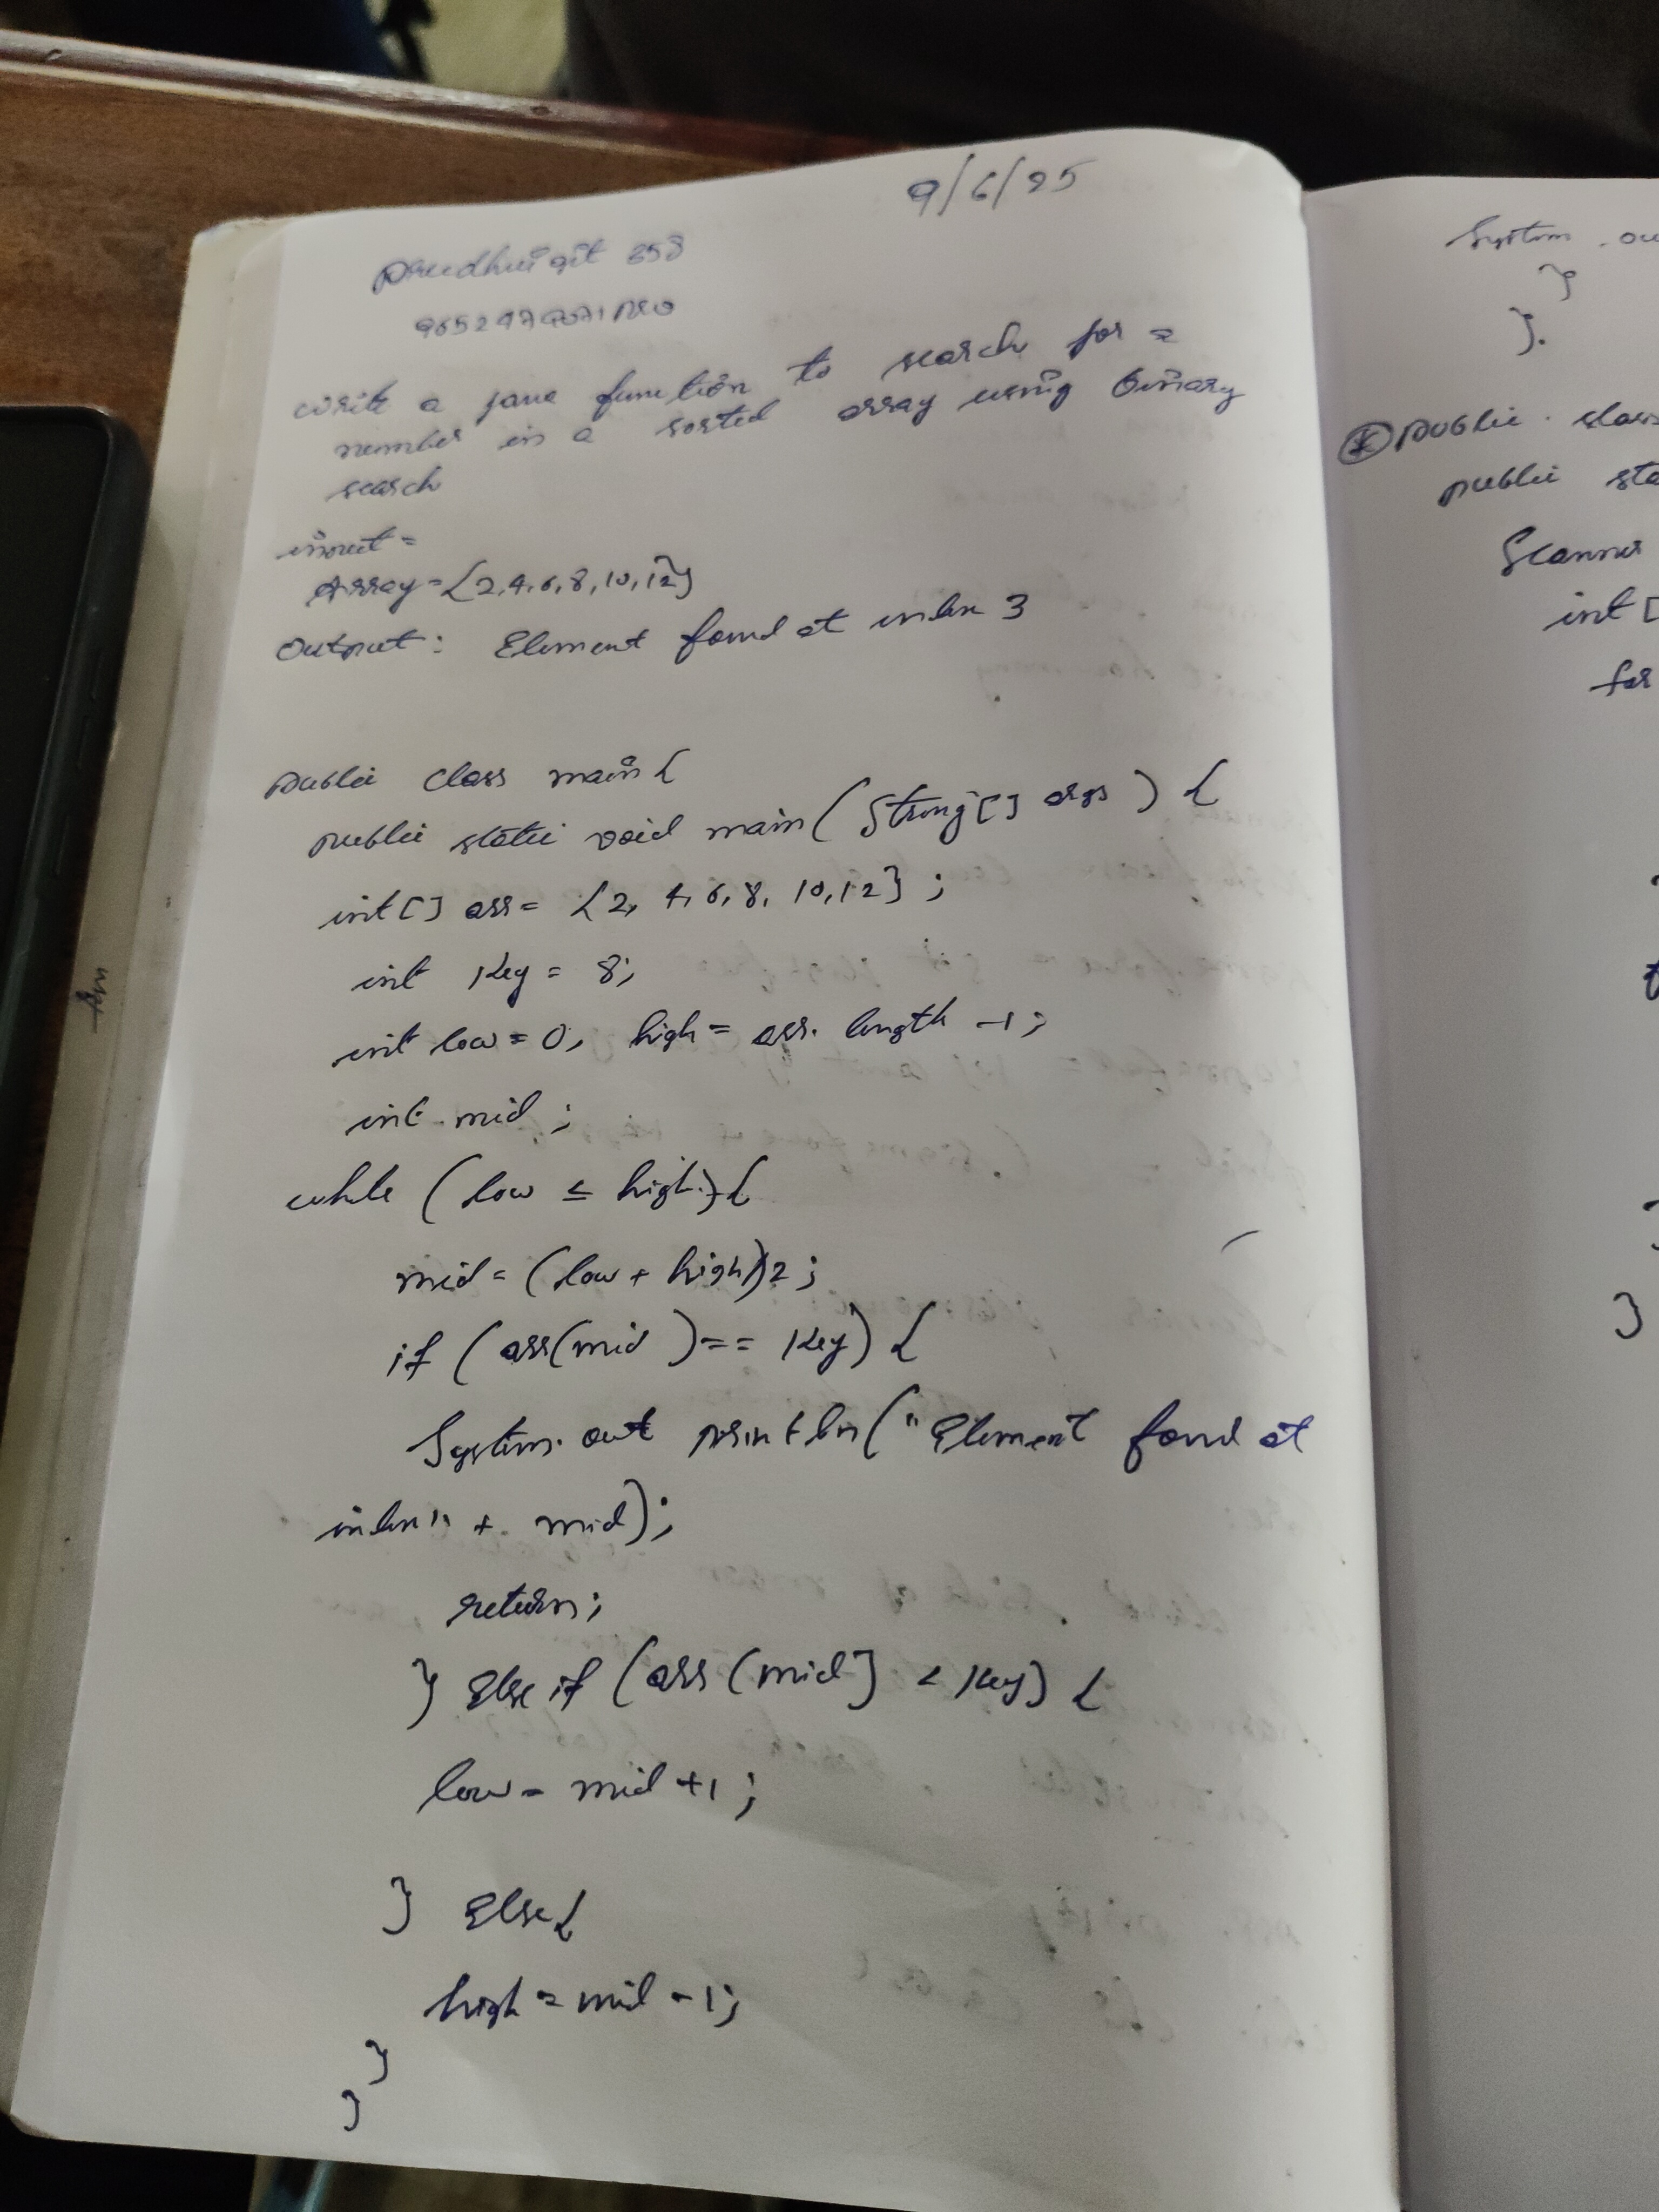 9/6/25
write a java function to search for a
number in a sorted array using binary
search
input =
Array = {2,4,6,8,10,12}
Output: Element found at index 3
public class main {
public static void main(String[] args) {
int[] arr = {2, 4, 6, 8, 10, 12};
int Key = 8;
int low = 0, high = arr.length -1;
int mid;
while (low ≤ high) {
mid = (low + high)/2;
if (arr(mid) == Key) {
System.out println("Element found at
index" + mid);
return;
} Else if (arr(mid] < Key) {
low = mid +1;
} Else {
high = mid -1;
}
}
System.ou
}
}.
public class
public sta
Scanner
int [
for
}